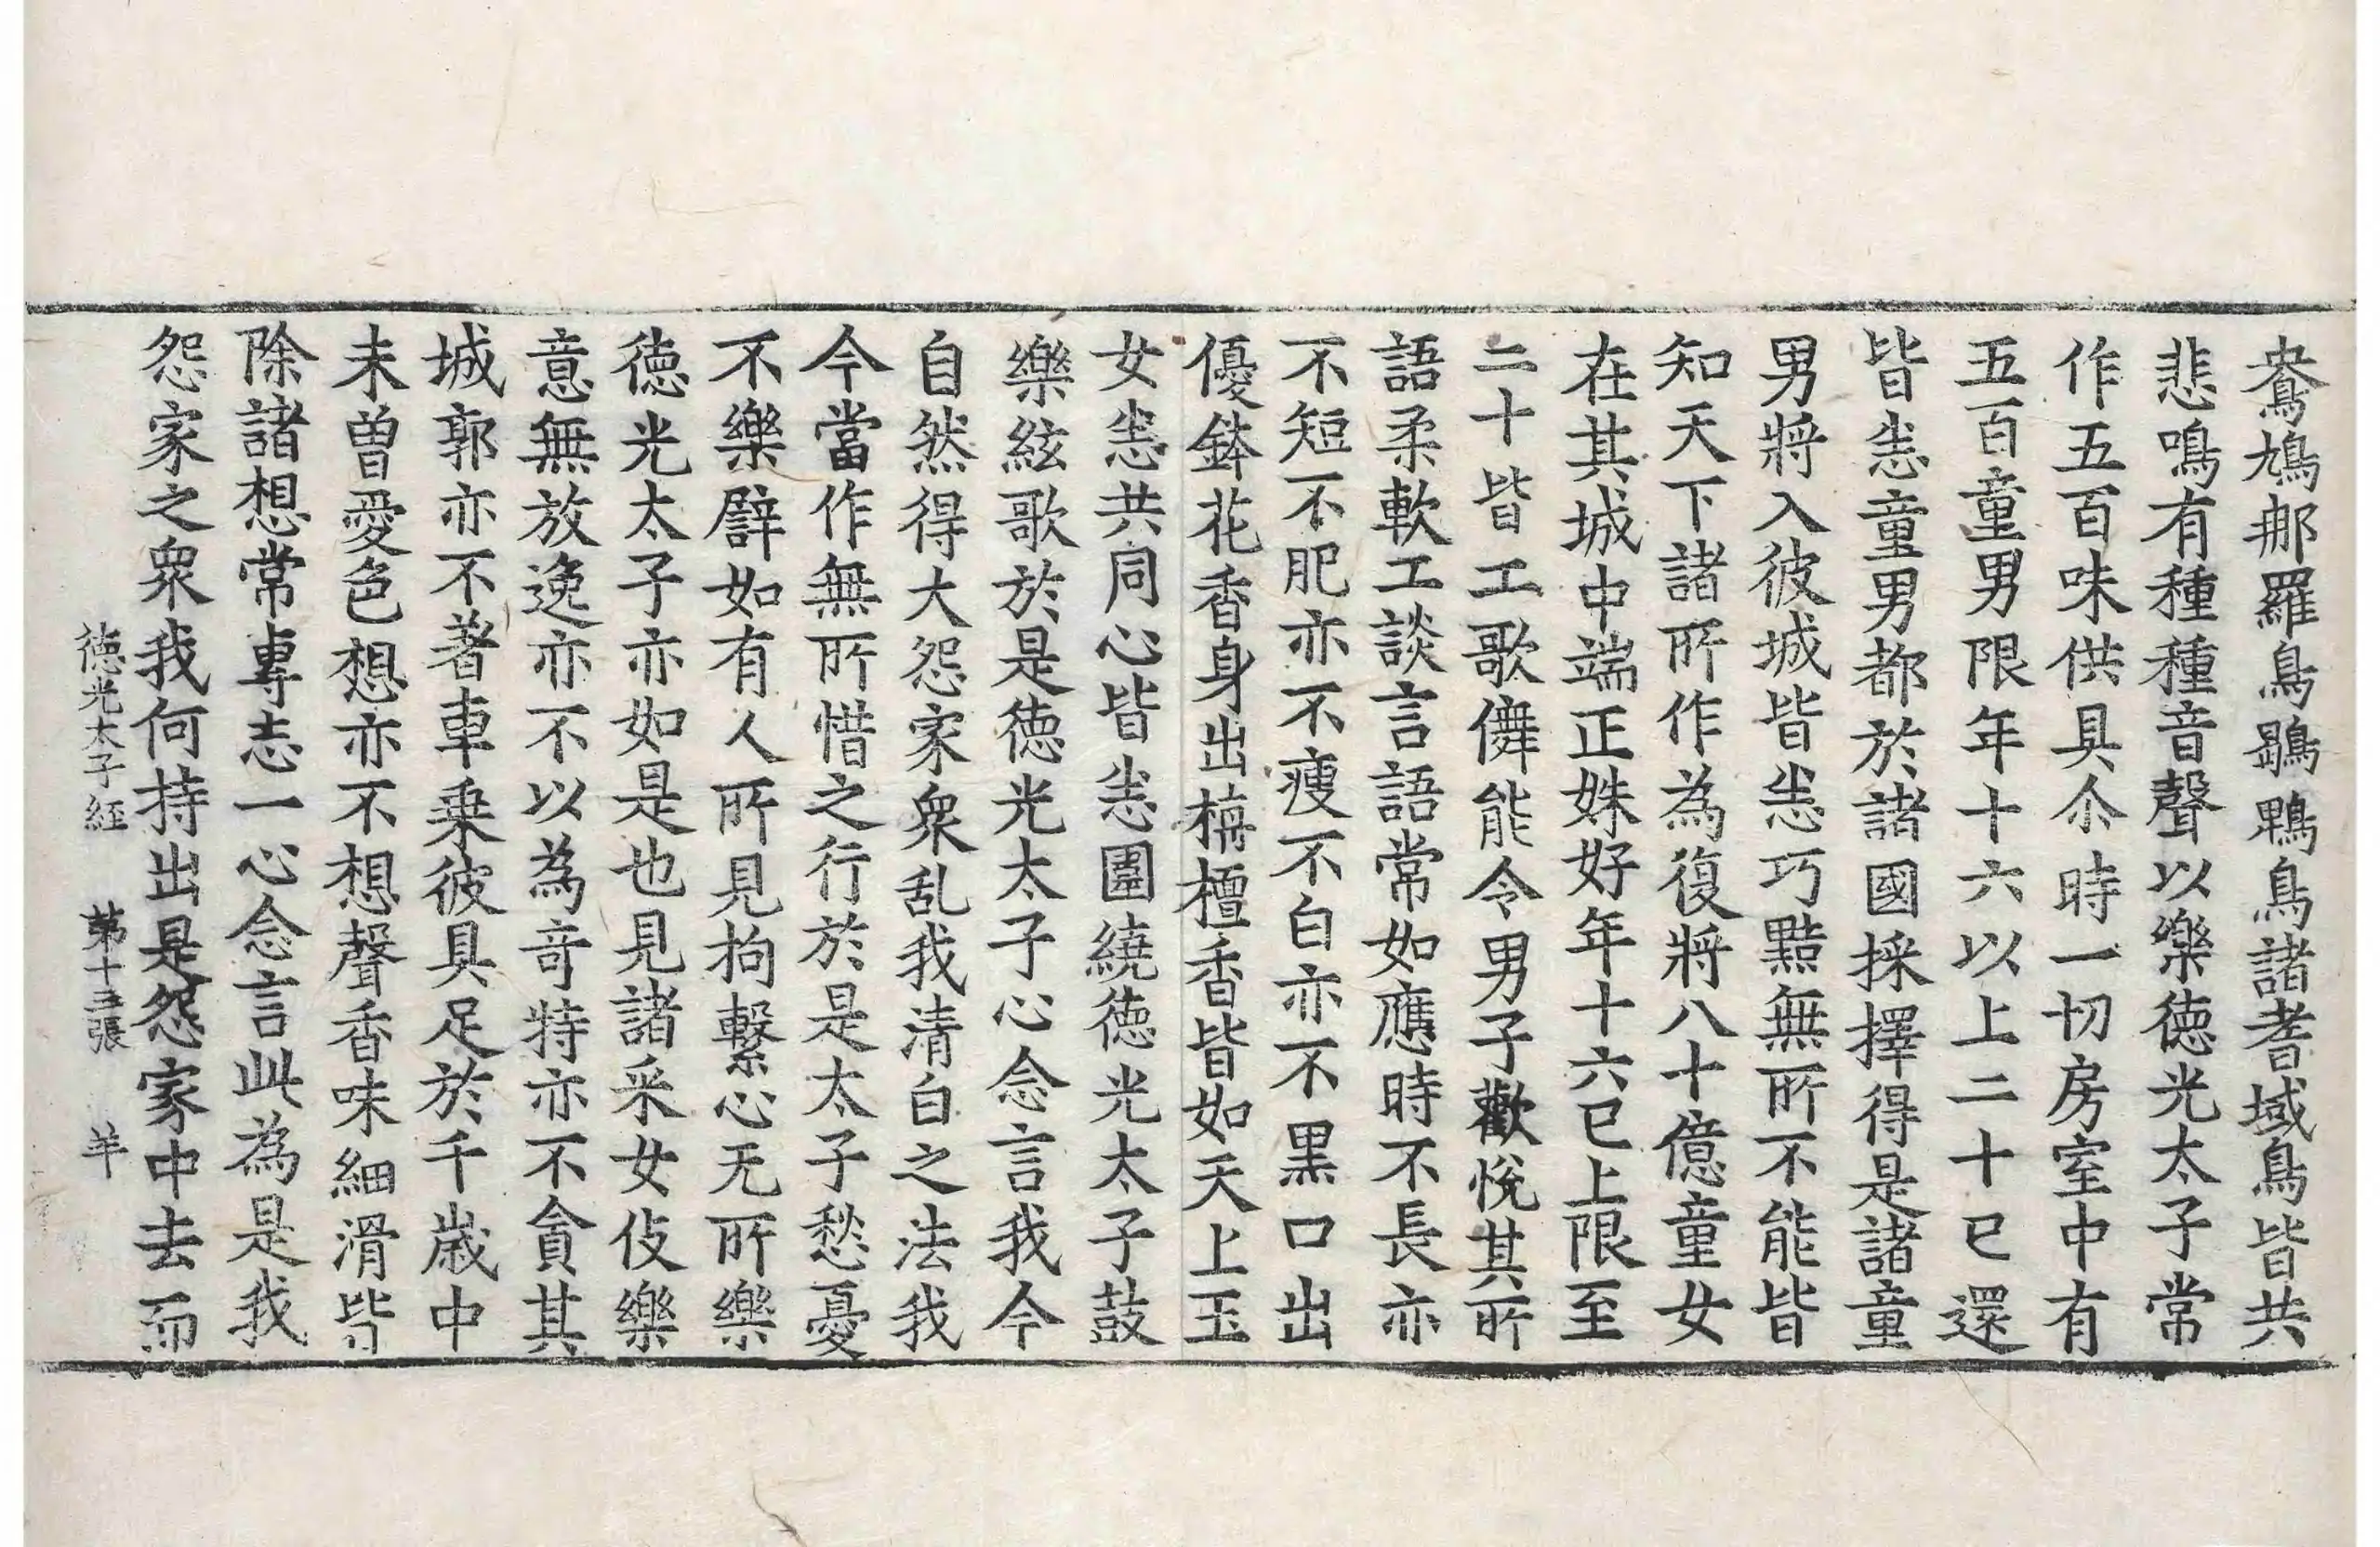 鴦鳩那羅鳥鶡鵯鳥諸耆域鳥皆共
悲鳴有種種音聲以樂德光太子常
作五百味供具尒時一切房室中有
五百童男限年十六以上二十已還
皆恚童男都於諸國採擇得是諸童
男將入彼城皆恚巧黠無所不能皆
知天下諸所作為復將八十億童女
在其城中端正姝好年十六已上限至
二十皆工歌儛能令男子歡悅其所
語柔軟工談言語常如應時不長亦
不短不肥亦不瘦不白亦不黑口出
優鉢花香身出栴檀香皆如天上玉
女恚共同心皆恚圍繞德光太子鼓
樂絃歌於是德光太子心念言我今
自然得大怨家衆乱我清白之法我
今當作無所惜之行於是太子愁憂
不樂譬如有人所見拘繫心无所樂
德光太子亦如是也見諸采女伎樂
意無放逸亦不以為竒特亦不貪其
城郭亦不著車乗彼具足於千歲中
未曾愛色想亦不想聲香味細滑皆
除諸想常專志一心念言此為是我
怨家之衆我何持出是怨家中去而
德光太子経 第十五張 羊